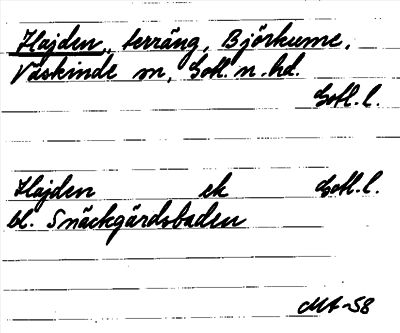 Hajden, terräng, Björkume,
Väskinde sn, Gotl. n. hd.
Gotl. l.
Hajden ek Gotl. l.
bl. Snäckgärdsbaden
MA-58